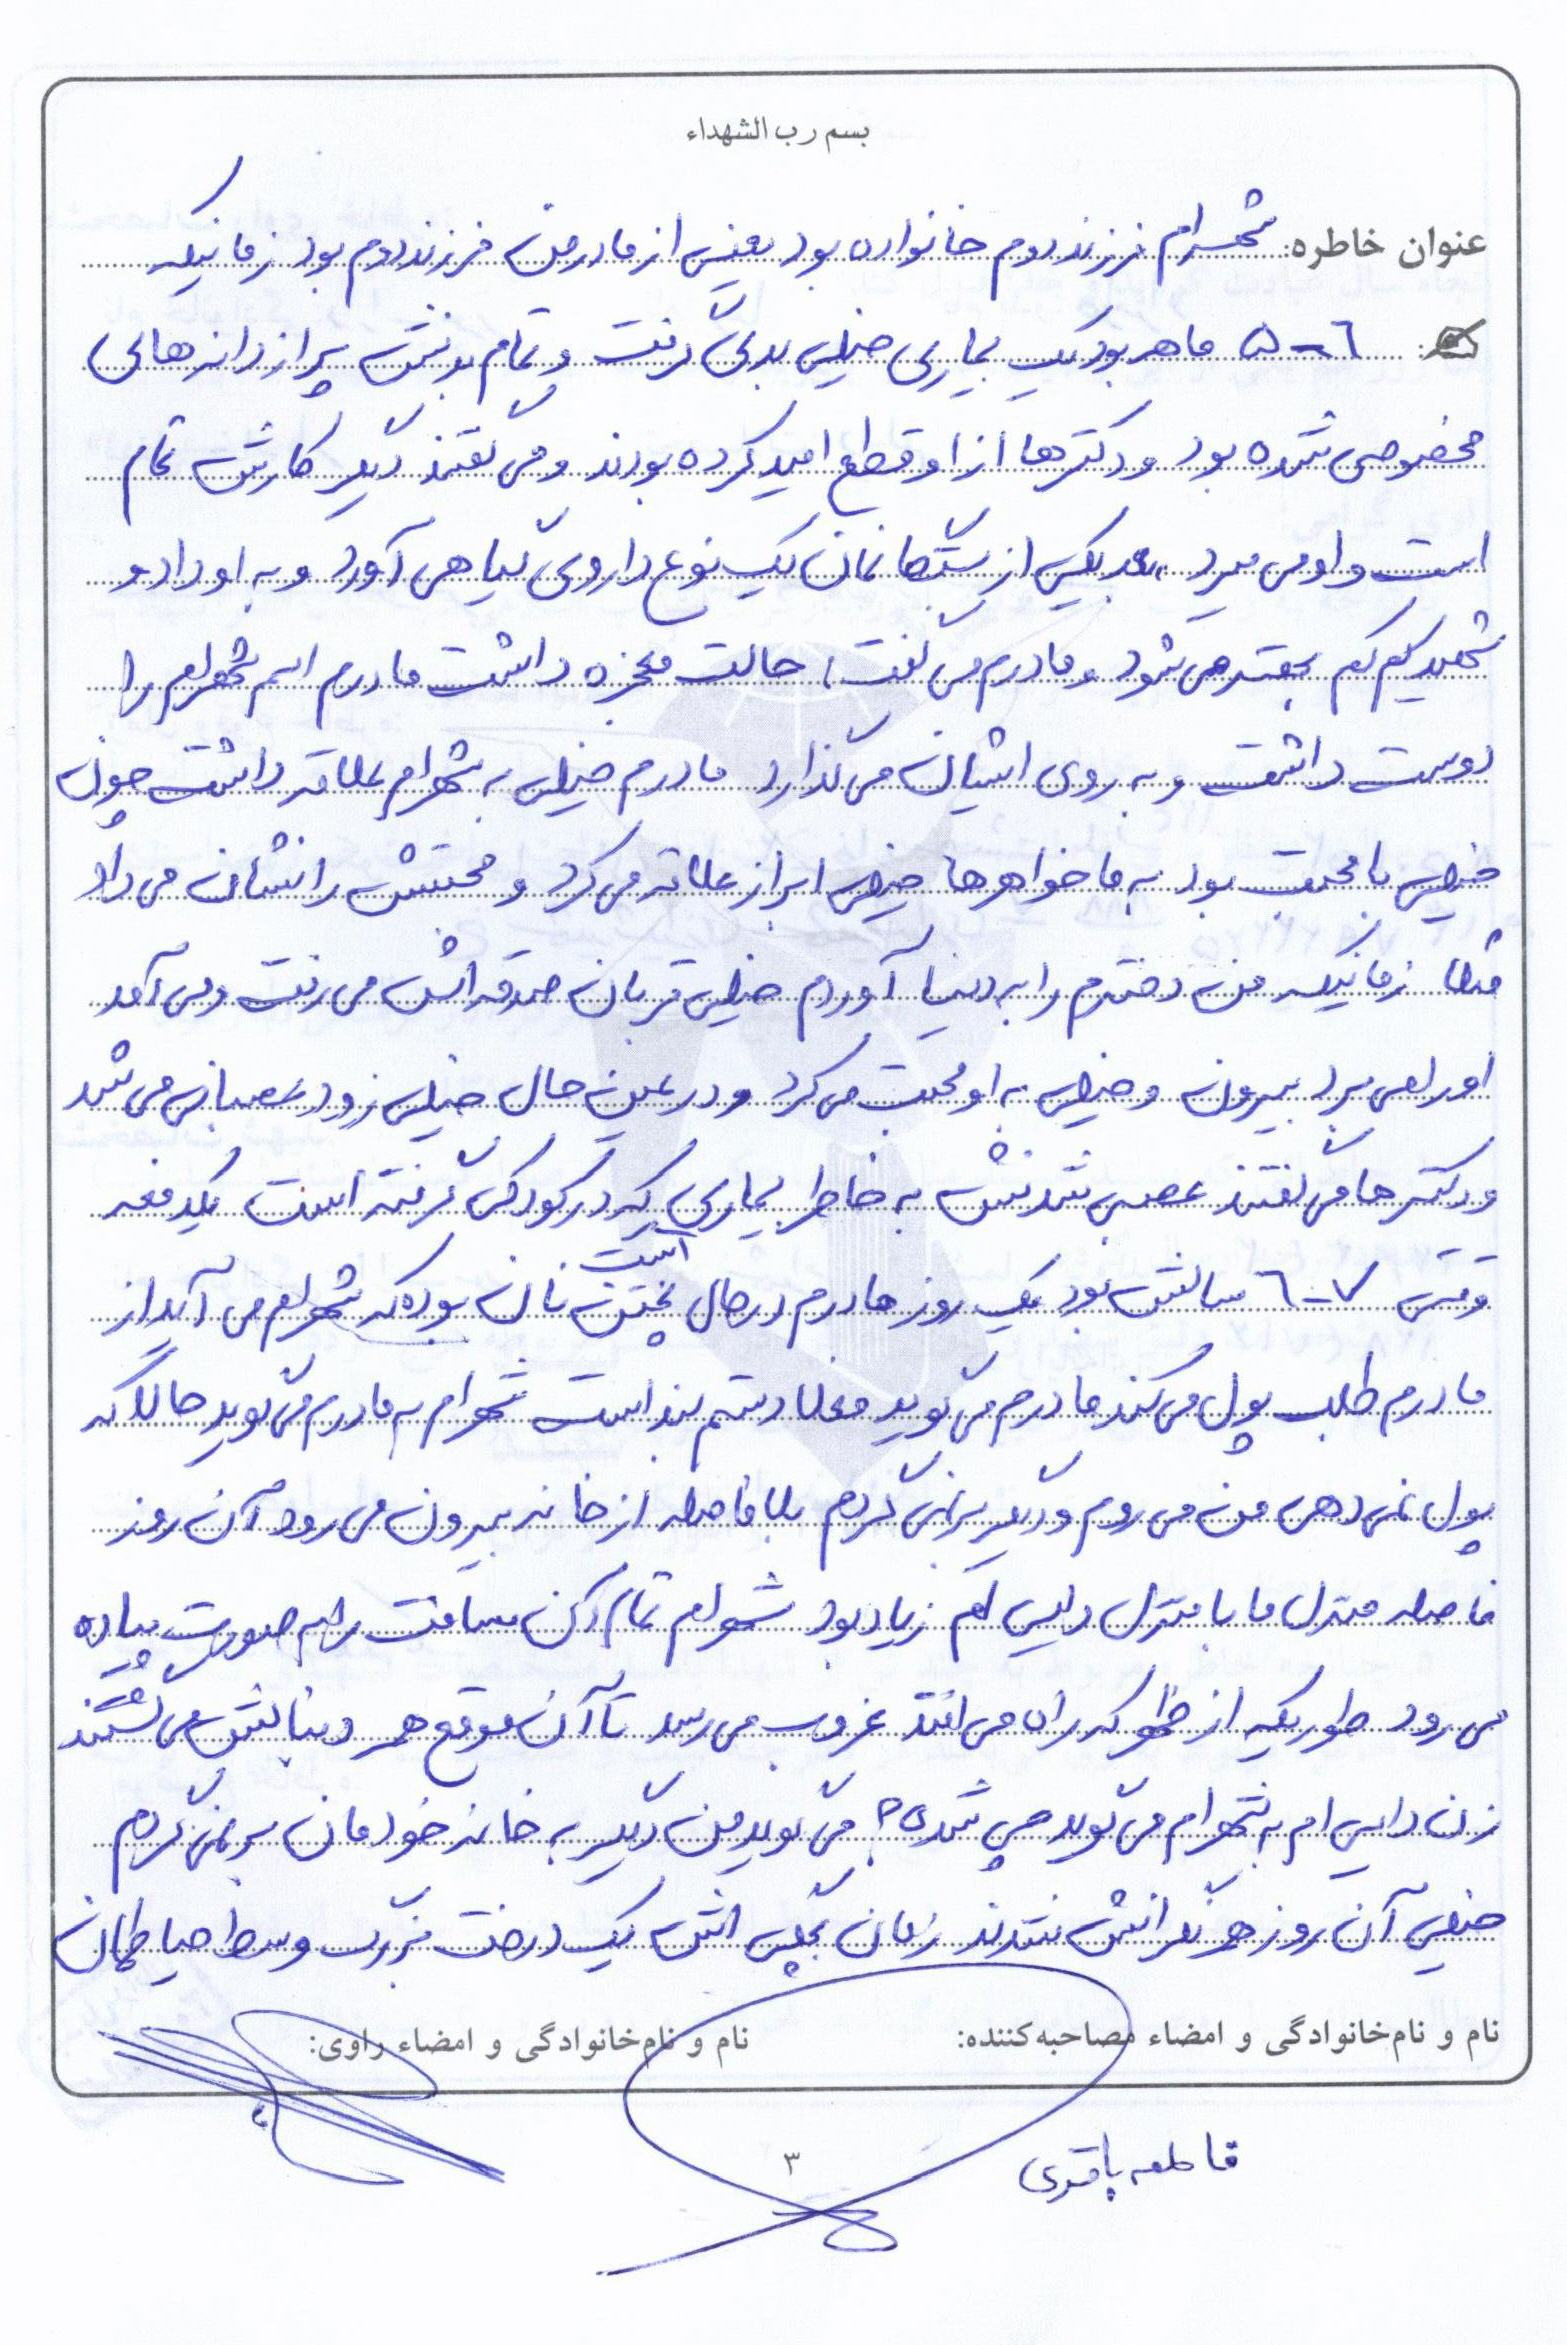 بسم رب الشهداء
عنوان خاطره: شهرام فرزند دوم خانواده بود یعنی از مادر من فرزند دوم بود زمانیکه
۵-۶ ماهه بود یک بیماری خیلی بدی گرفت و تمام بدنش پر از دانه هایی
مخصوصی شده بود و دکترها از او قطع امید کرده بودند و می گفتند دیگر کارش تمام
است و او می میرد، بعد یکی از بستگانمان یک نوع داروی گیاهی آورد و به او داد و
شهید کم کم بهتر می شود و مادرم می گفت، حالت معجزه داشت مادرم اسم شهرام را
دوست داشت و به روی ایشان می گذارد مادرم خیلی به شهرام علاقه داشت چون
خیلی با محبت بود به ما خواهرها خیلی ابراز علاقه می کرد و محبتش را نشان می داد
مثلا زمانیکه من دخترم را به دنیا آوردم خیلی قربان صدقه اش می رفت و می آمد
او را می برد بیرون و خیلی به او محبت می کرد و در عین حال خیلی زود عصبانی می شد
و دکترها می گفتند عصبی شدنش به خاطر بیماری که در کودکی گرفته است یکدفعه
وقتی ۶-۷ سالش بود یک روز مادرم در حال پختن نان بوده که شهرام می آید از
مادرم طلب پول می کند مادرم می گوید فعلا دستم بند است شهرام به مادرم می گوید حالا که
پول نمی دهی من می روم و دیگر برنمی گردم بلافاصله از خانه بیرون می رود آن روز
فاصله منزل ما با منزل دایی ام زیاد بود شهرام تمام آن مسافت را به صورت پیاده
می رود طوریکه از ظهر که راه می افتد غروب می رسد تا آن موقع همه دنبالش می گشتند
زن دایی ام به شهرام می گوید چی شده؟ می گوید من دیگر به خانه خودمان برنمی گردم
خیلی آن روز همه نگرانش شدند زمان بچگی اش یک درخت بزرگ وسط حیاطمان
نام و نام خانوادگی و امضاء مصاحبه کننده: نام و نام خانوادگی و امضاء راوی:
فاطمه باقری
۳